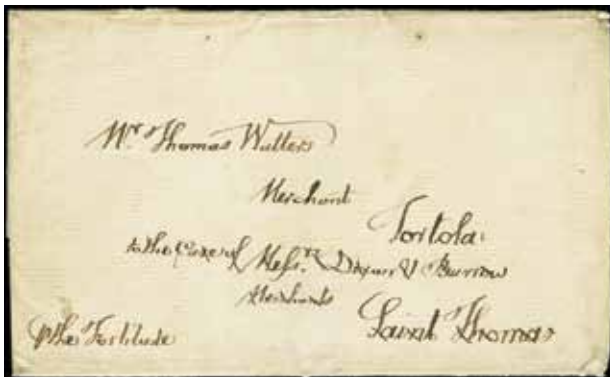 Mr Thomas Wutters
Merchant
Tortola
to the Care of Messrs. & Burrow
Merchants
Saint Thomas
p the Fortitude